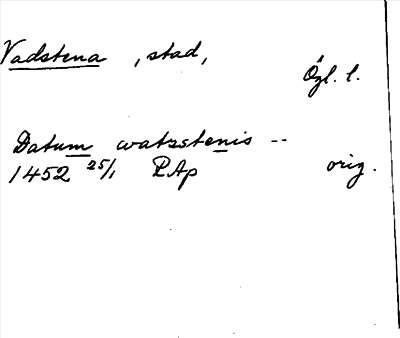 Vadstena, stad,
Ögl. l.
Datum watzstenis --
1452 25/1 RAp orig.